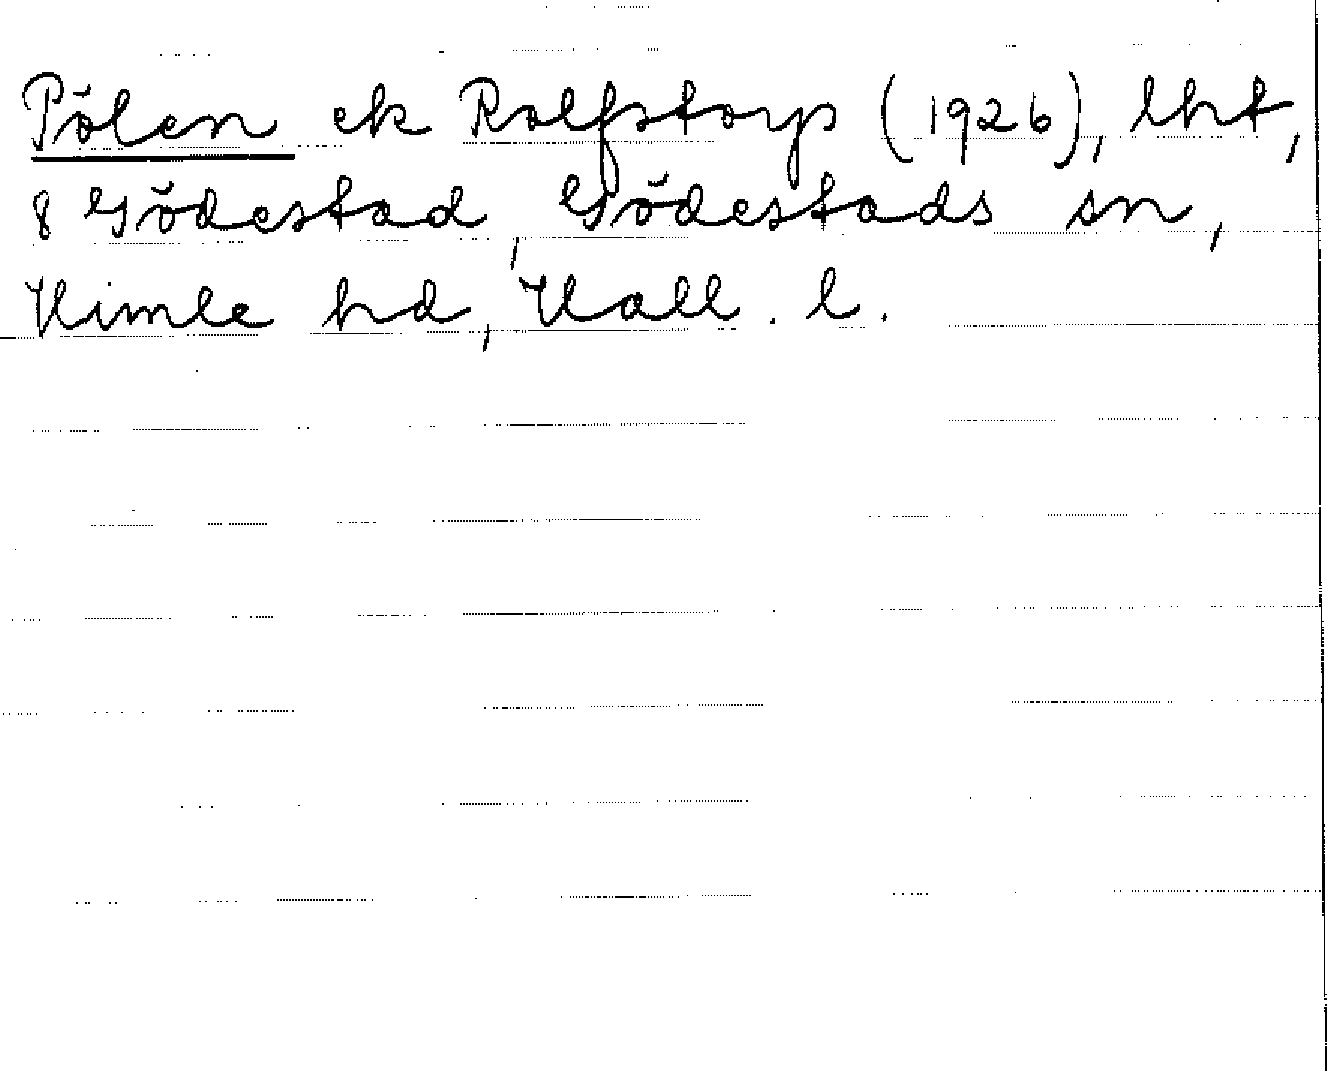 Pölen ek Rolfstorps (1926), lht,
8 Gödestad, Gödestads sn,
Himle hd, Hall. l.